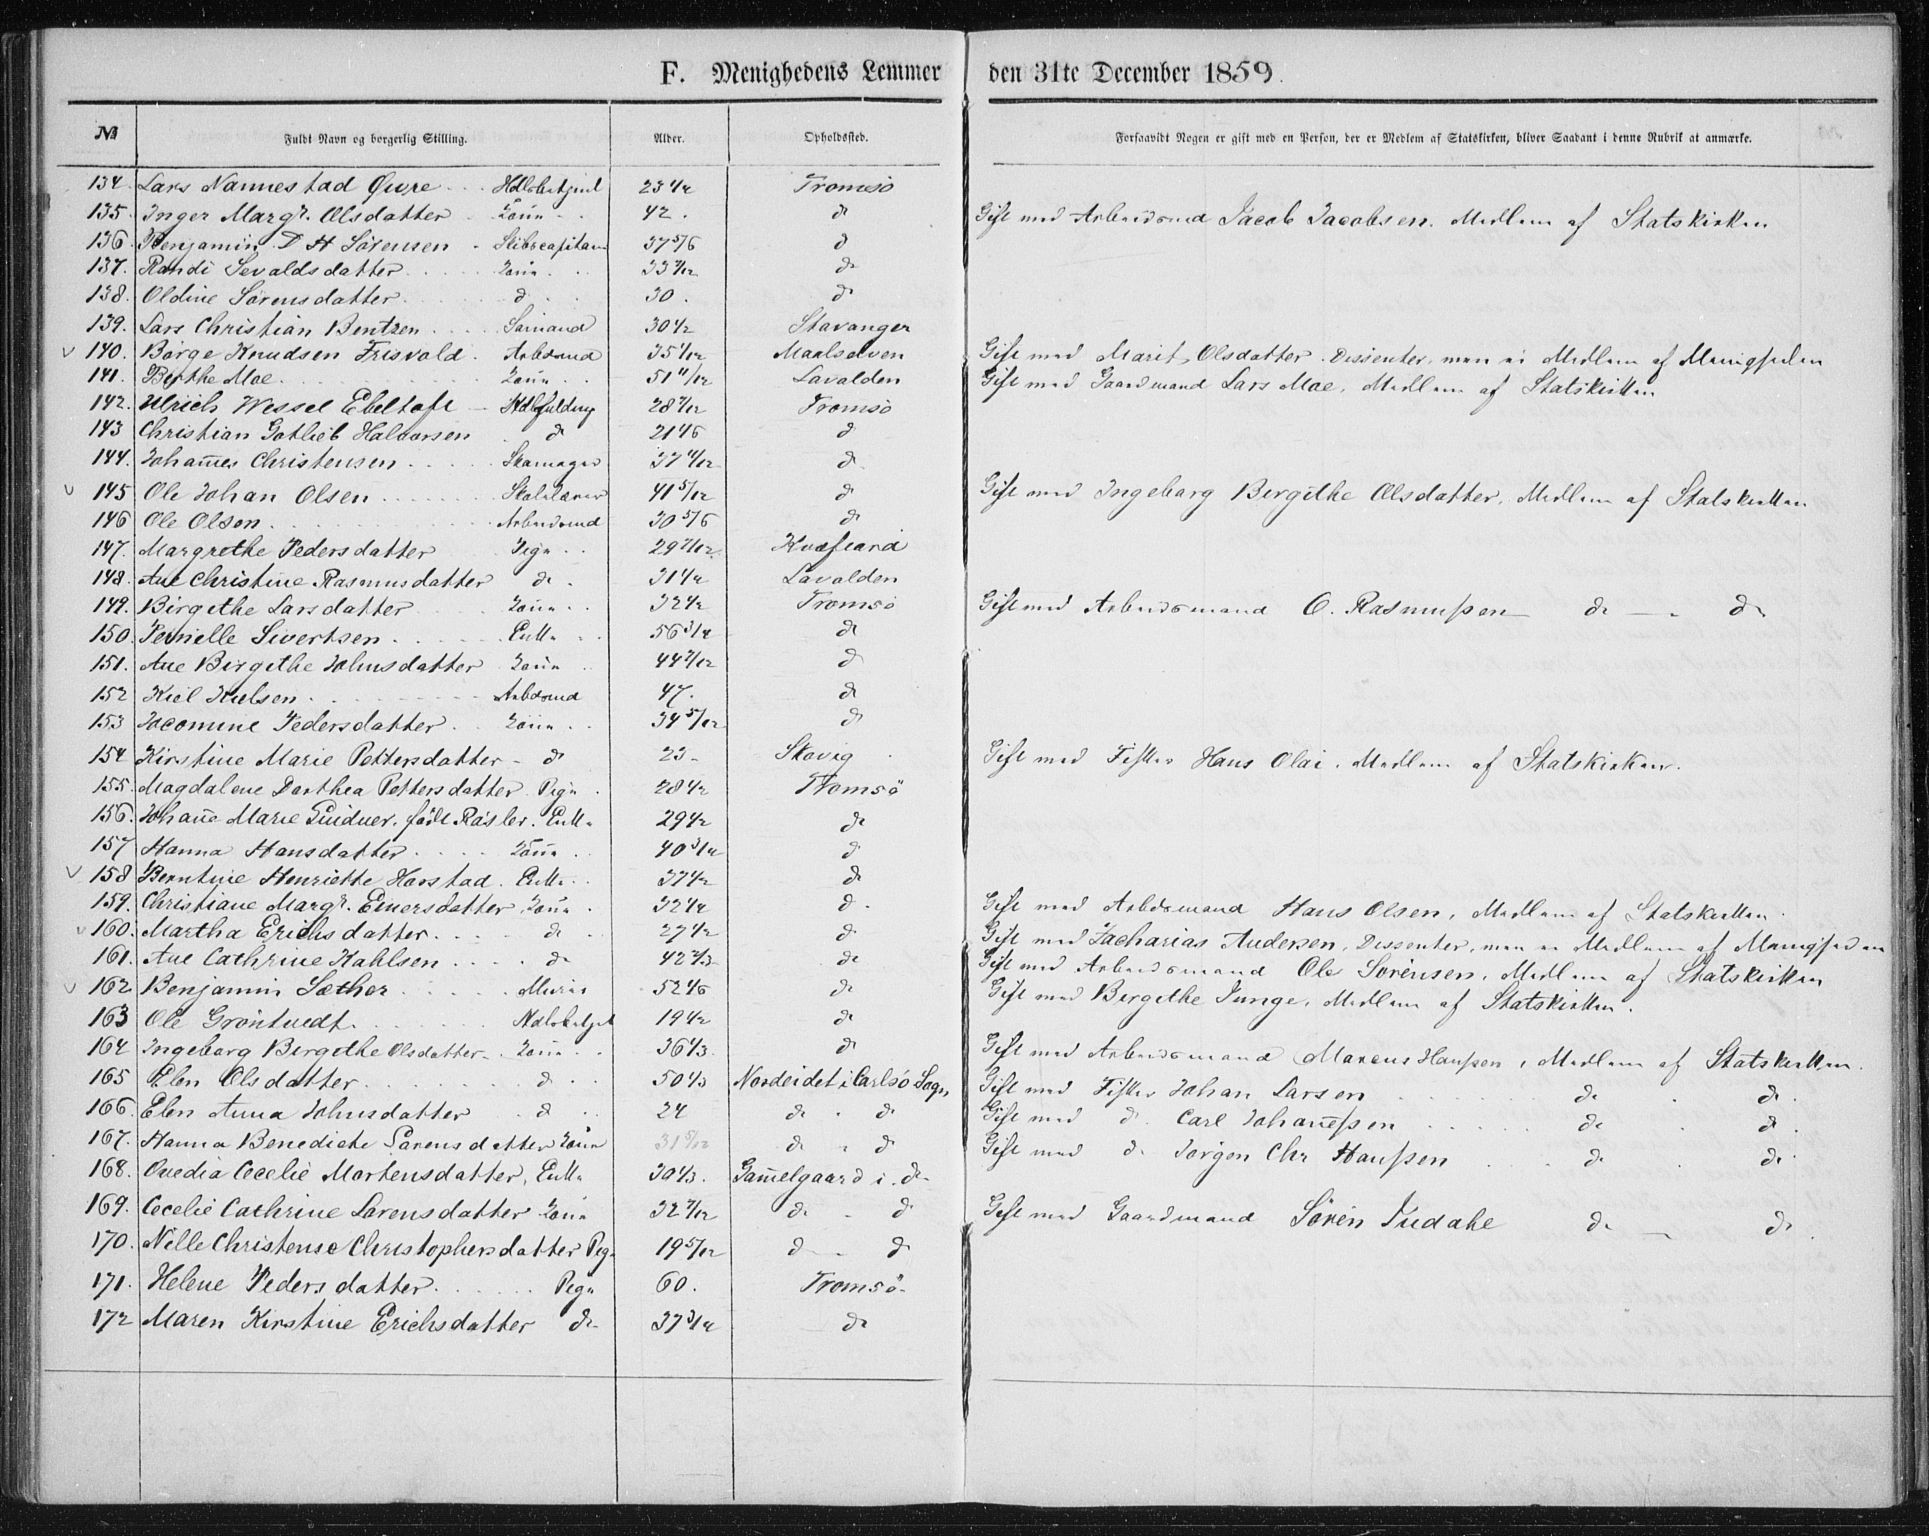 F. Menighedens Lemmer den 31te December 1859.
№ Fuldt Navn og borgerlig Stilling. Alder. Opholdssted. Forsaavidt Nogen er gift med en Person, der er Medlem af Statskirken, bliver Saadant i denne Rubrik at anmærke.
134. Lars Nannestad Qvyre Tromsø
135. Inger Margr. Olsdatter Kone 42. do Gift med Arbeidsmd Jacob Jacobsen. Medlem af Statskirken
136 Benjamin D H Sørensen Skibscapitain 37 5/6 d
137. Randi Sevaldsdatter Kone do
138. Oldine Sørensdatter d 30. do
139. Lars Christian Bentzen Sømand 30 1/2 Stavanger
140. Børge Knudsen Frisvold. Arbdsmd 35 1/12 Maalselven Gift med Marit Olsdatter. Dissenter, men ei Medlem af Menigheden
141. Berthe Moe Kone 51 11/12 Lavalden Gift med Gaardmand Lars Moe, Medlem af Statskirken
142. Ulrich Wessel Ebeltoft 28 7/12 Tromsø
143 Christian Gotlieb Halvorsen do 21 1/6 d
144. Johañes Christensen Skomager d
145 Ole Johan Olsen Skolelærer 41 5/12 do Gift med Ingeborg Birgithe Olsdatter, Medlem af Statskirken
146 Ole Olsen Arbeidsmd 30 5/6 do
147. Margrethe Pedersdatter Pige 29 7/12 Kvæfiord
148. Ane Christine Rasmusdatter do 31 1/2 Lavalden
149. Birgithe Larsdatter Kone 32 1/2 Tromsø Gift med Arbeidsmand O. Rasmussen do do
150. Pernelle Sivertsen Enke 56 3/4 do
151. Ane Birgithe Johnsdatter Kone 44 7/12 d
152 Kiel Kielsen Arbdsmd 47. do
153 Jocomine Pedersdatter Kone 34 5/12 d
154 Kirstine Marie Pettersdatter do 23 Skavig Gift med Fisker Hans Olai. Medlem af Statskirken.
155. Magdalene Dorthea Pettersdatter Pige 28 1/2 Tromsø
156. Johañe Marie Lindner, født Räsler. Enke 29 1/2 do
157 Hanna Hansdatter Kone 40 3/4 d
158 Berntine Henriette Harstad. Enke 37 1/2 do
159. Christiane Margr. Einersdatter Kone 32 1/4 d. Gift med Arbdsmand Hans Olsen, Medlem af Statskirken.
160. Martha Erichsdatter do 27 1/2 do Gift med Zacharias Andersen, Dissenter, men ei Medlem af Menigheden
161. Ane Cathrine Kahlsen do 42 2/3 do Gift med Arbeidsmand Ole Sørensen, Medlem af Statskirken
162 Benjamin Sæther Murer 52 1/6 do Gift med Birgithe Junge, Medlem af Statskirken.
163 Ole Grøntvedt 19 1/2 do
164 Ingeborg Birgithe Olsdatter Kone 36 1/3 do Gift med Arbeidsmand Marcus Hanssen, Medlem af Statskirken.
165 Elen Olsdatter d 50 1/3 Nordeidet i Carlsø Sogn Gift med Fisker Johan Larsen do do
166. Elen Anna Johnsdatter d 24 do do Gift med do Carl Johañessen do do
167. Hanna Benedicte Sørensdatter Kone 31 5/12 do do Gift med do Jørgen Chr Hanssen do do
168. Ovedia Cecelie Mortensdatter, Enke 30 1/3. Gam̃elgaard i do
169. Cecelie Cathrine Lorensdatter Kone 32 7/12 do do Gift med Gaardmand Sören do do
170. Nille Christense Christophersdatter Pige 19 5/12 do do
171. Helene Pedersdatter Pige 60. Tromsø
172 Maren Kirstine Erichsdatter do 37 3/4 do